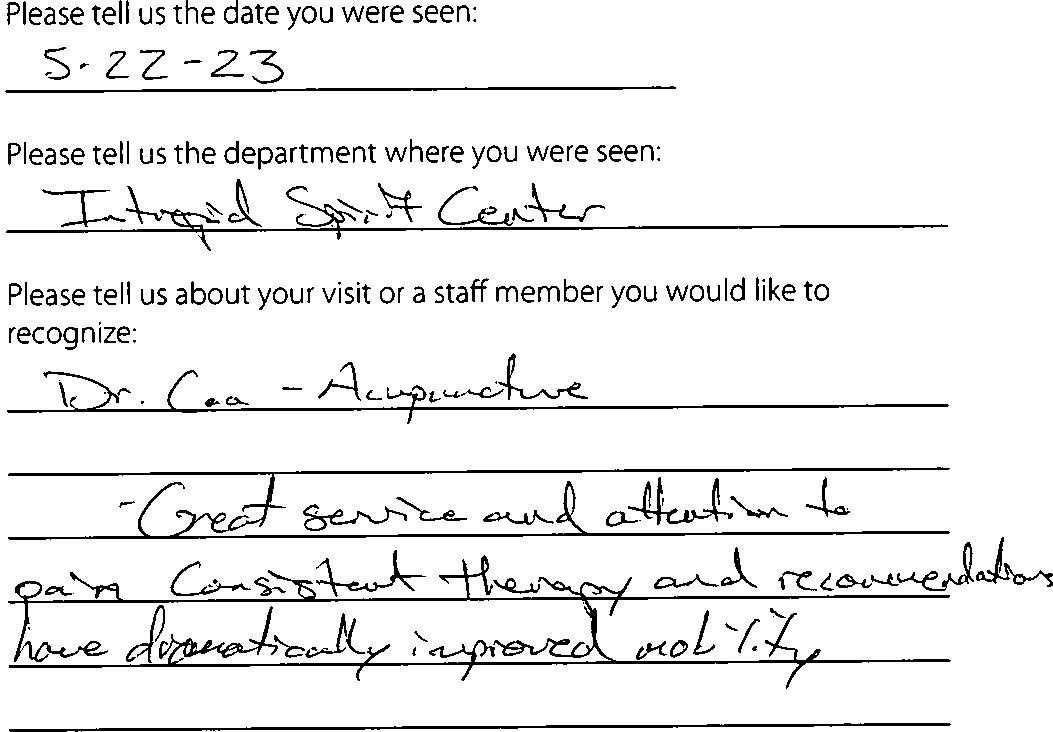 Please tell us the date you were seen:
5-22-23
Please tell us the department where you were seen:
Intrepid Spirit Center
Please tell us about your visit or a staff member you would like to
recognize:
Dr. - Acupuncture
- Great service and attention to
pain Consistent therapy and recommendations
have dramatically improved mobility